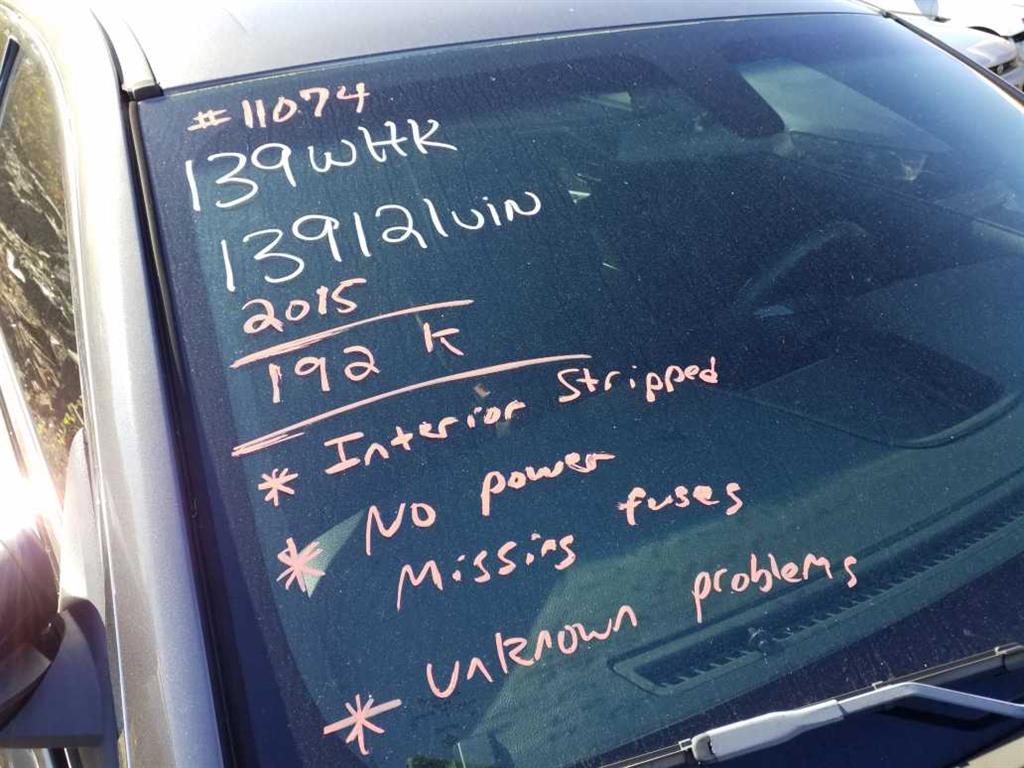 #11074
139WHK
139121VIN
2015
192 K
* Interior Stripped
* No power
Missing fuses
* Unknown problems